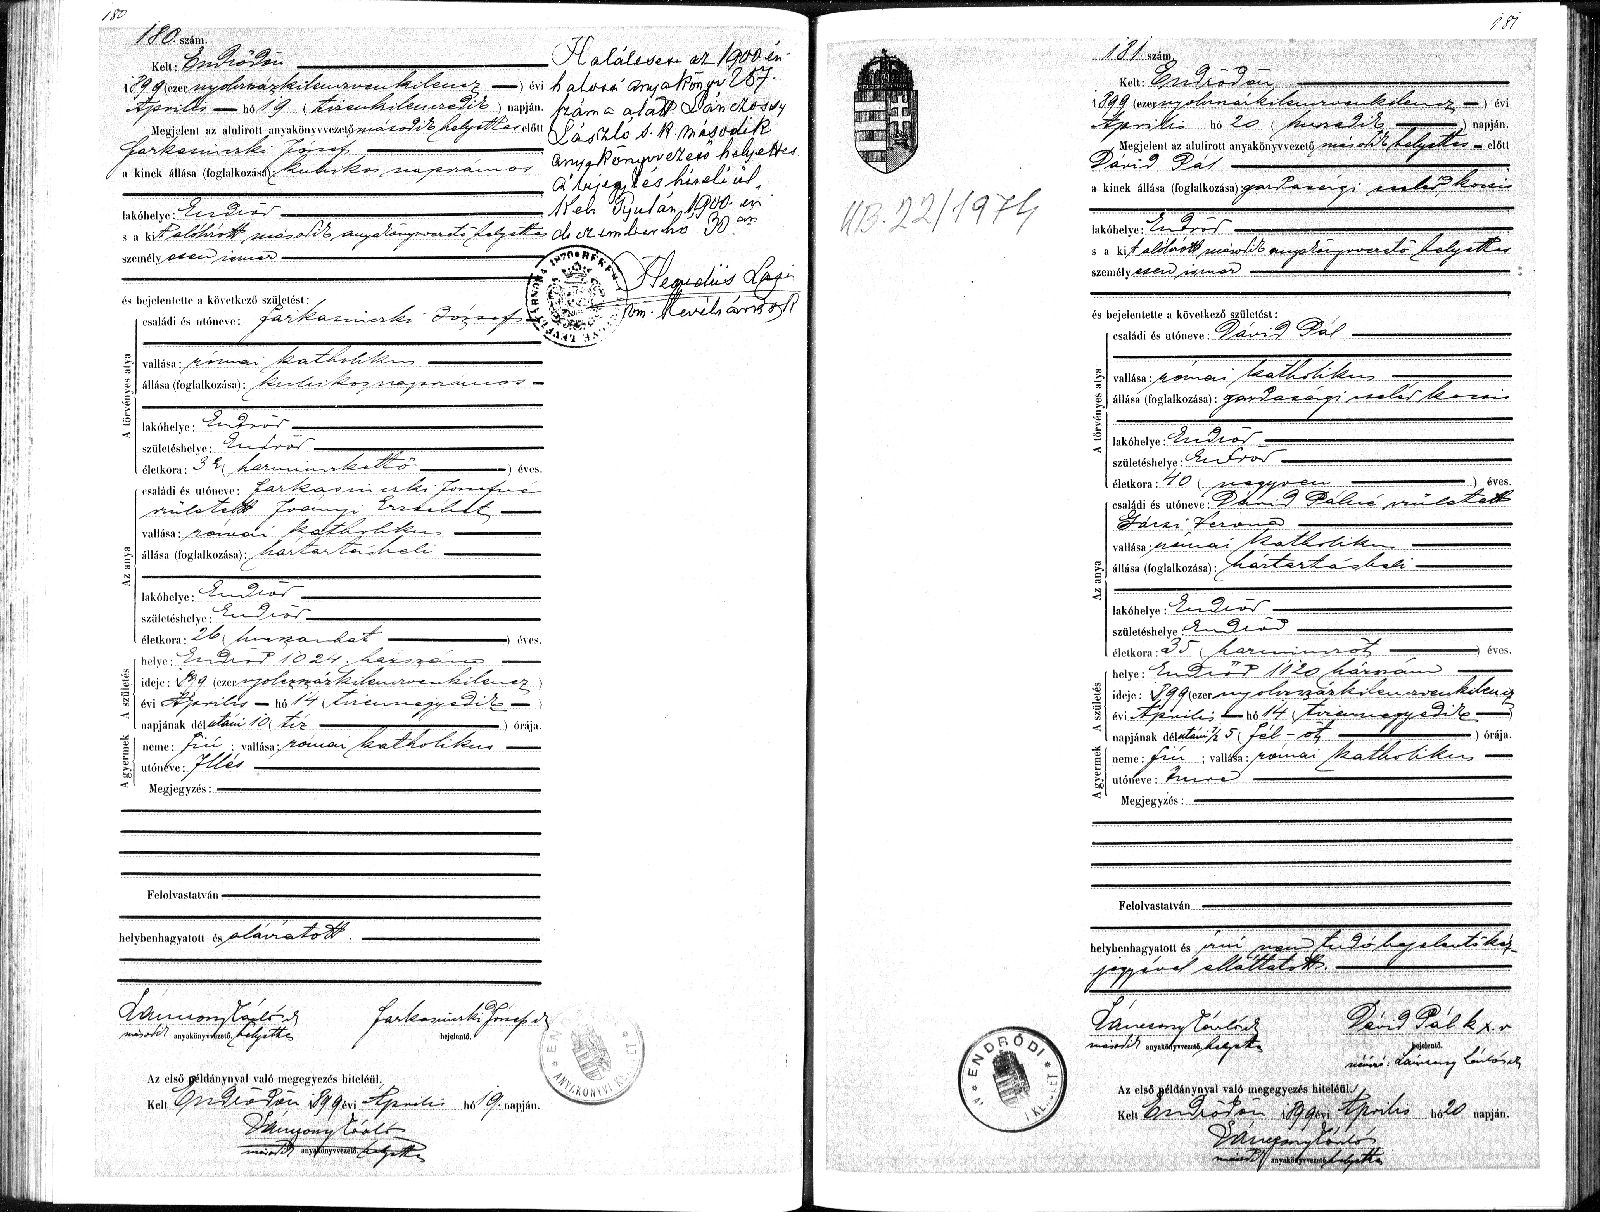 180
180. szám.
Kelt: Endrődön
1899 (ezer nyolczszázkilenczvenkilencz) évi
Április hó 19 (tizenkilenczedik) napján.
Megjelent az alulirott anyakönyvvezető második helyettes előtt
Farkasinszki József
a kinek állása (foglalkozása) kubikos napszámos
lakóhelye: Endrőd
s a kit alólírott második anyakönyvvezető helyettes
személyesen ismer
és bejelentette a következő születést:
A törvényes atya
családi és utóneve: Farkasinszki József
vallása: római katholikus
állása (foglalkozása): kubikos napszámos
lakóhelye: Endrőd
születéshelye: Endrőd
életkora: 32 (harminczkettő) éves.
Az anya
családi és utóneve: Farkasinszki Józsefné
született Iványi Erzsébet
vallása: római katholikus
állása (foglalkozása): háztartásbeli
lakóhelye: Endrőd
születéshelye: Endrőd
életkora: 26 (huszonhat) éves.
A születés
helye: Endrőd 1024. házszám
ideje: 1899 (ezer nyolczszázkilenczvenkilencz)
évi Április hó 14 (tizennegyedik)
napjának délutáni 10 (tíz) órája.
A gyermek
neme: fiú; vallása: római katholikus
utóneve: Illés
Megjegyzés:
Felolvastatván
helybenhagyatott és aláíratott.
Farkasinszki József
második anyakönyvvezető helyettes
bejelentő.
Az első példánynyal való megegyezés hiteléül.
Kelt Endrődön 1899 évi Április hó 19. napján.
második anyakönyvvezető helyettes
Halálesete az 1900 évi
halotti anyakönyv 257.
száma alatt Lánczossy
László s. k. második
anyakönyvvezető helyettes
átjegyzés hiteléül.
Kelt Gyulán, 1900. évi
deczember hó 30 án
Hegedüs
181
181. szám.
Kelt: Endrődön
1899 (ezer nyolczszázkilenczvenkilencz) évi
Április hó 20 (huszadik) napján.
Megjelent az alulirott anyakönyvvezető második helyettes előtt
Dávid Pál
a kinek állása (foglalkozása): gazdasági cseléd kocsis
lakóhelye: Endrőd
s a kit alólírott második anyakönyvvezető helyettes
személyesen ismer
és bejelentette a következő születést:
A törvényes atya
családi és utóneve: Dávid Pál
vallása: római katholikus
állása (foglalkozása): gazdasági cseléd kocsis
lakóhelye: Endrőd
születéshelye: Endrőd
életkora: 40 (negyven) éves.
Az anya
családi és utóneve: Dávid Pálné született
vallása: római katholikus
állása (foglalkozása): háztartásbeli
lakóhelye: Endrőd
születéshelye: Endrőd
életkora: 35 (harminczöt) éves.
A születés
helye: Endrőd 1120 házszám
ideje: 1899 (ezer nyolczszázkilenczvenkilencz
évi Április hó 14 (tizennegyedik)
napjának délutáni ½5 (fél-öt) órája.
A gyermek
neme: fiú; vallása: római katholikus
utóneve: Imre
Megjegyzés:
Felolvastatván
helybenhagyatott és írni nem tudó bejelentő kéz-
jegyével elláttatott.
Dávid Pál k x v
második anyakönyvvezető helyettes
bejelentő.
Az első példánynyal való megegyezés hiteléül.
Kelt Endrődön 1899 évi Április hó 20 napján.
második anyakönyvvezető helyettes
UB. 22/1974
ENDRŐDI